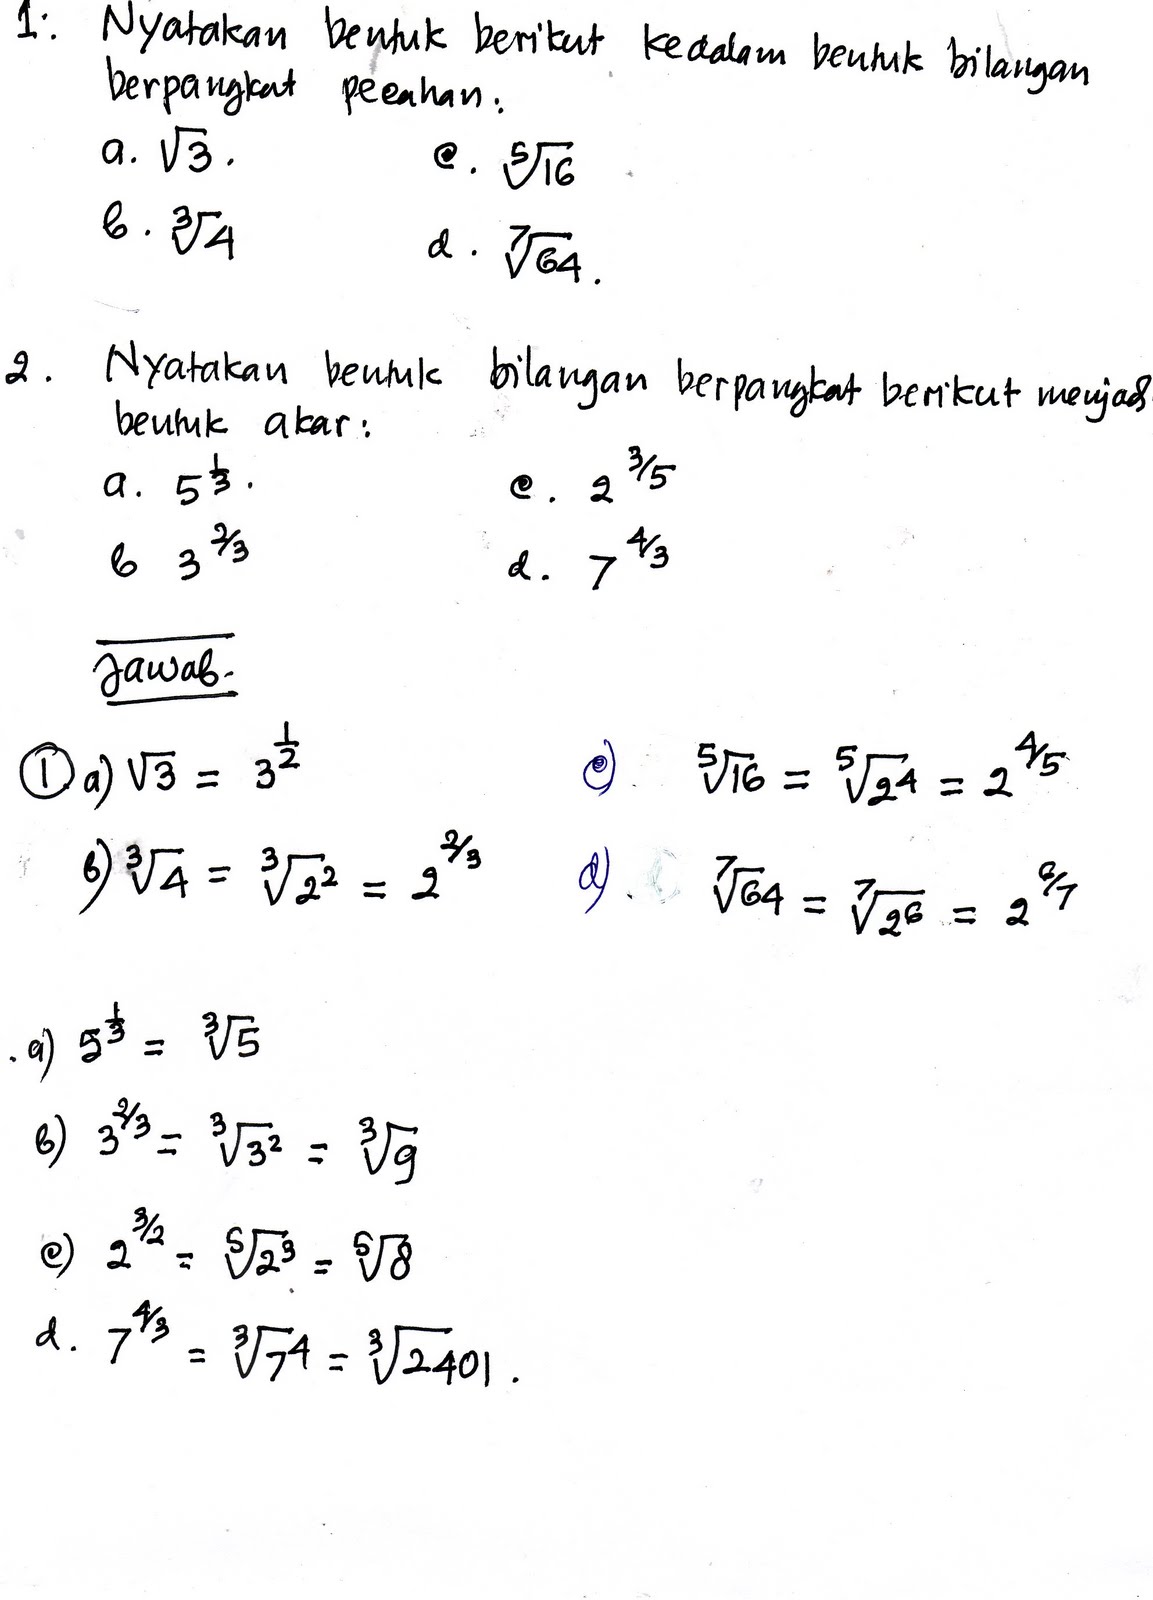 1. Nyatakan bentuk berikut kedalam bentuk bilangan
berpangkat pecahan:
a. √3. c. ⁵√16
b. ³√4 d. ⁷√64.
2. Nyatakan bentuk bilangan berpangkat berikut menjadi
bentuk akar:
a. 5^(1/3). c. 2^(3/5)
b 3^(2/3) d. 7^(4/3)
Jawab.
① a) √3 = 3^(1/2) c) ⁵√16 = ⁵√2⁴ = 2^(4/5)
b) ³√4 = ³√2² = 2^(2/3) d). ⁷√64 = ⁷√2⁶ = 2^(6/7)
. a) 5^(1/3) = ³√5
b) 3^(2/3) = ³√3² = ³√9
c) 2^(3/2) = ⁵√2³ = ⁵√8
d. 7^(4/3) = ³√7⁴ = ³√2401.